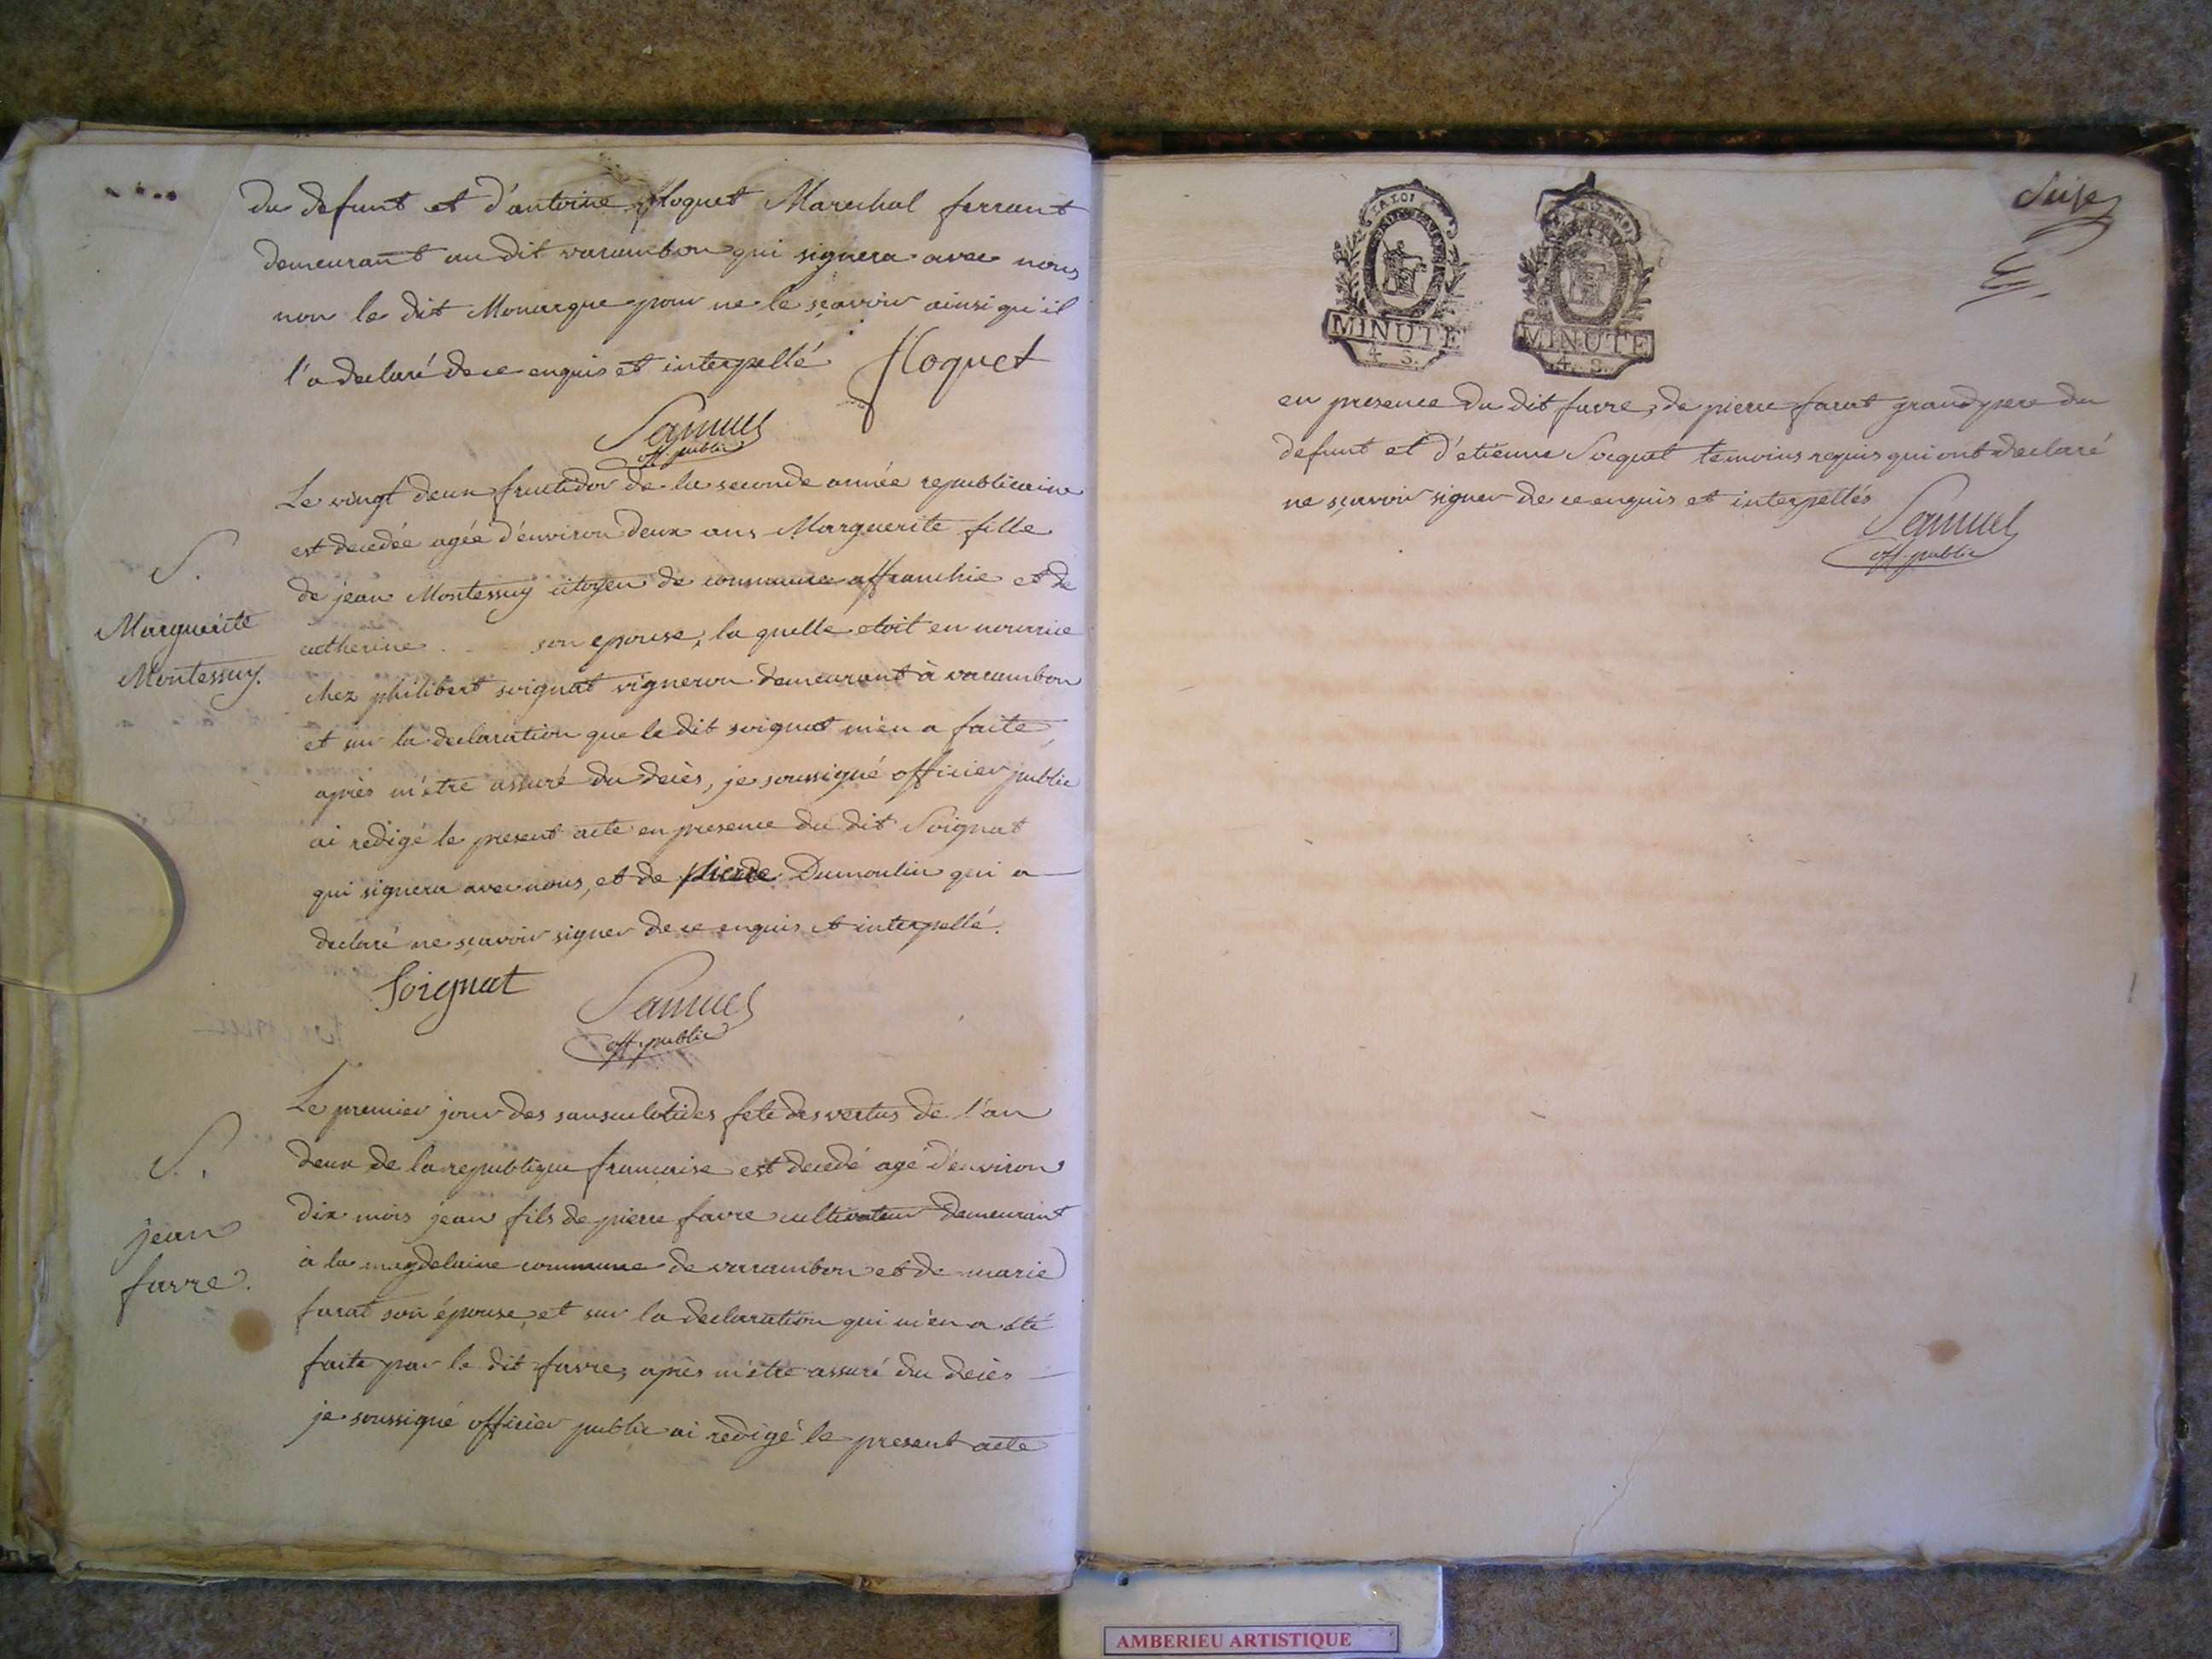 du defunt et d'antoine floquet Marechal ferrant
demeurant au dit varambon qui signera avec nous
non le dit Monargue pour ne le sçavoir ainsi qu'il
l'a declaré de ce enquis et interpellé floquet
Samuel
off. public
S.
Marguerite
Montessuy.
Le vingt deux fructidor de la seconde année republicaine
est decedée agée d'environ deux ans Marguerite fille
de jean Montessuy citoyen de commune affranchie et de
catherine son epouse, la quelle etoit en nourrice
chez philibert soignat vigneron demeurant à varambon
et sur la declaration que le dit soignat m'en a faite,
après m'etre assuré du decès, je soussigné officier public
ai redigé le present acte en presence du dit Soignat
qui signera avec nous, et de pierre Dumoulin qui a
declaré ne sçavoir signer de ce enquis et interpellé.
Soignat Samuel
off. public
S.
jean
favre.
Le premier jour des sansculotides fete des vertus de l'an
deux de la republique francaise est decedé agé d'environ
dix mois jean fils de pierre favre cultivateur demeurant
à la magdelaine commune de varambon et de marie
farat son épouse, et sur la declaration qui m'en a été
faite par le dit favre, après m'etre assuré du decès
je soussigné officier public ai redigé le present acte
LA LOI
MINUTE
4. S.
MINUTE
4. S.
en presence du dit favre, de pierre farat grand pere du
defunt et d'etienne Soequet temoins requis qui ont declaré
ne sçavoir signer de ce enquis et interpellés
Samuel
off. public
AMBERIEU ARTISTIQUE